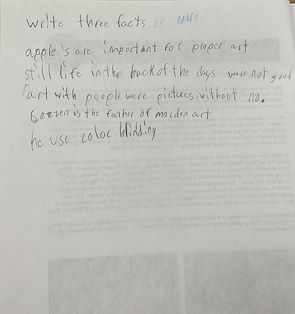 write three facts or more
apple's are important for proper art
still life in the back of the days were not good
art with people were pictures without no.
is the father of mocden art
he use color blidding